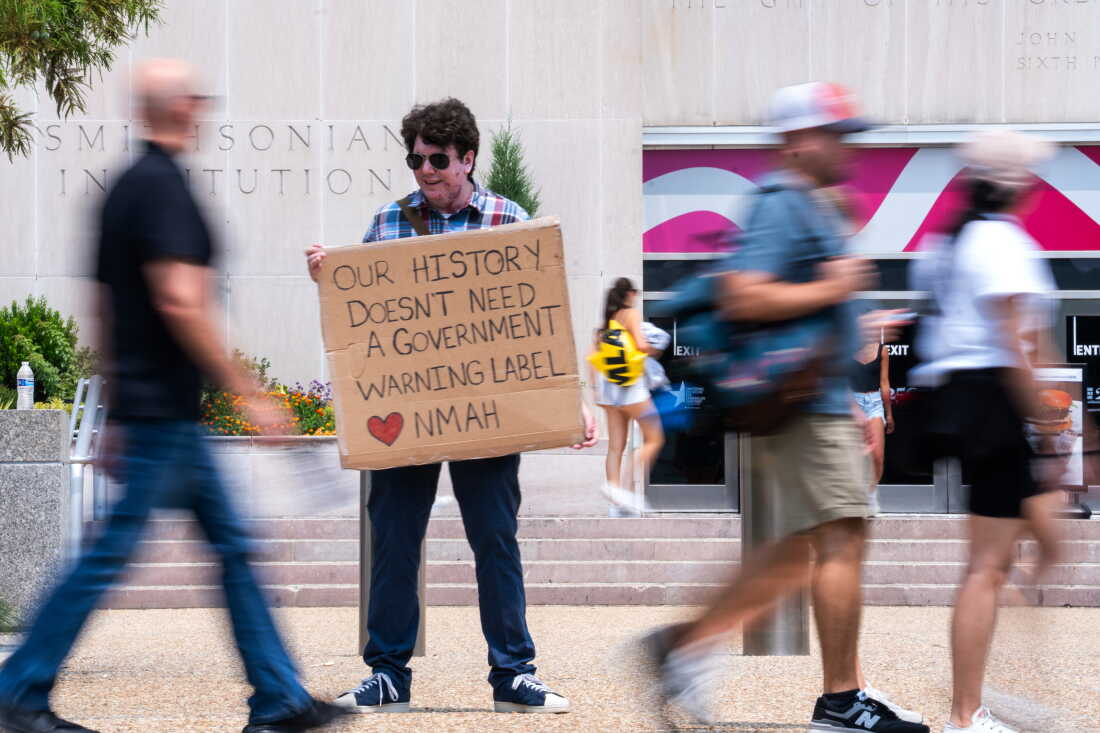 THE GIFT OF
JOHN
SIXTH P
SMITHSONIAN
INSTITUTION
OUR HISTORY
DOESN'T NEED
A GOVERNMENT
WARNING LABEL
NMAH
EXIT
EXIT
ENT
N